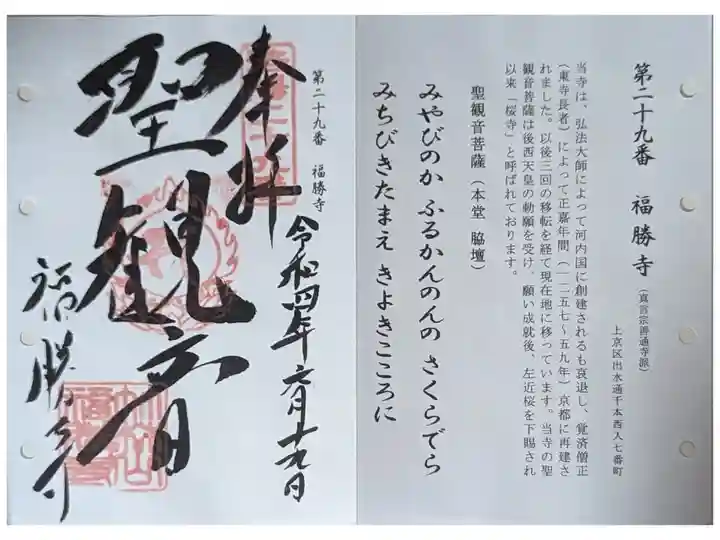 第二十九番 福勝寺
奉拝
令和四年六月十九日
聖観音
福勝寺
第二十九番 福勝寺(真言宗善通寺派)
上京区出水通千本西入七番町
当寺は、弘法大師によって河内国に創建されるも衰退し、覚済僧正
(東寺長者)によって正嘉年間(一二五七〜五九年)京都に再建さ
れました。以後三回の移転を経て現在地に移っています。当寺の聖
観音菩薩は後西天皇の勅願を受け、願い成就後、左近桜を下賜され
以来「桜寺」と呼ばれております。
聖観音菩薩(本堂 脇壇)
みやびのか ふるかんのんの さくらでら
みちびきたまえ きよきこころに